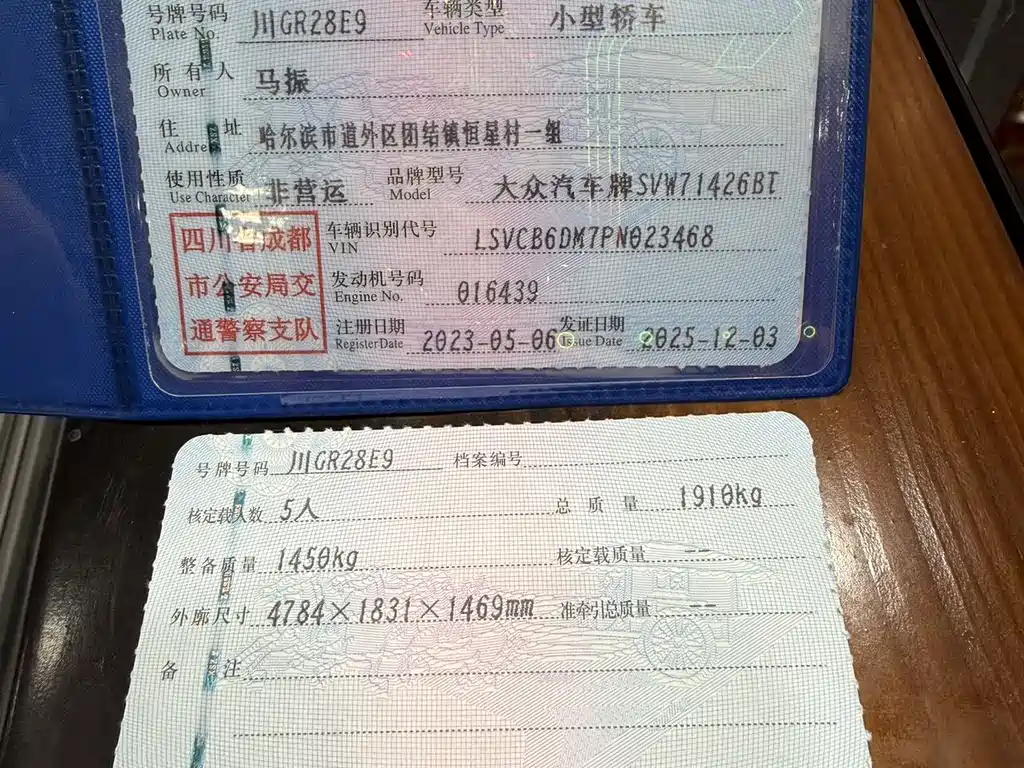 号牌号码 川GR28E9 车辆类型 小型轿车
Plate No. Vehicle Type
所有人 马振
Owner
住址 哈尔滨市道外区团结镇恒星村一组
Address
使用性质 非营运 品牌型号 大众汽车牌SVW71426BT
Use Character Model
四川省成都
市公安局交
通警察支队
车辆识别代号 LSVCB6DM7PN023468
VIN
发动机号码 016439
Engine No.
注册日期 2023-05-06 发证日期 2025-12-03
Register Date Issue Date
号牌号码 川GR28E9 档案编号
核定载人数 5人 总质量 1910kg
整备质量 1450kg 核定载质量 --
外廓尺寸 4784×1831×1469mm 准牵引总质量 --
备注